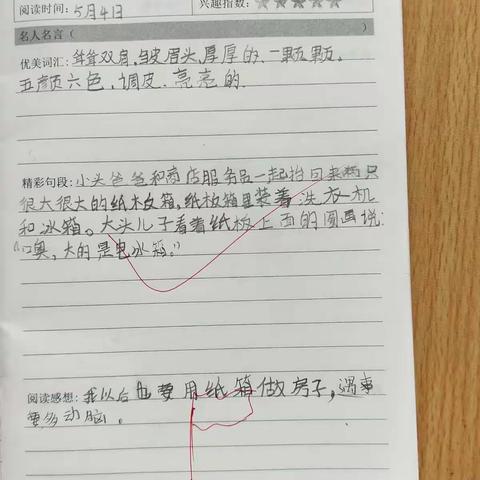 阅读时间：5月4日 兴趣指数：
名人名言（ ）
优美词汇：耸耸双肩，皱皮眉头，厚厚的，一颗颗，
五颜六色，调皮，亮亮的
精彩句段：小头爸爸和商店服务品一起抬回来两只
很大很大的纸板箱，纸板箱里装着洗衣机
和冰箱。大头儿子看着纸板上面的图画说：
“噢，大的是电冰箱。”
阅读感想：我以后也要用纸箱做房子，遇事
要多动脑。